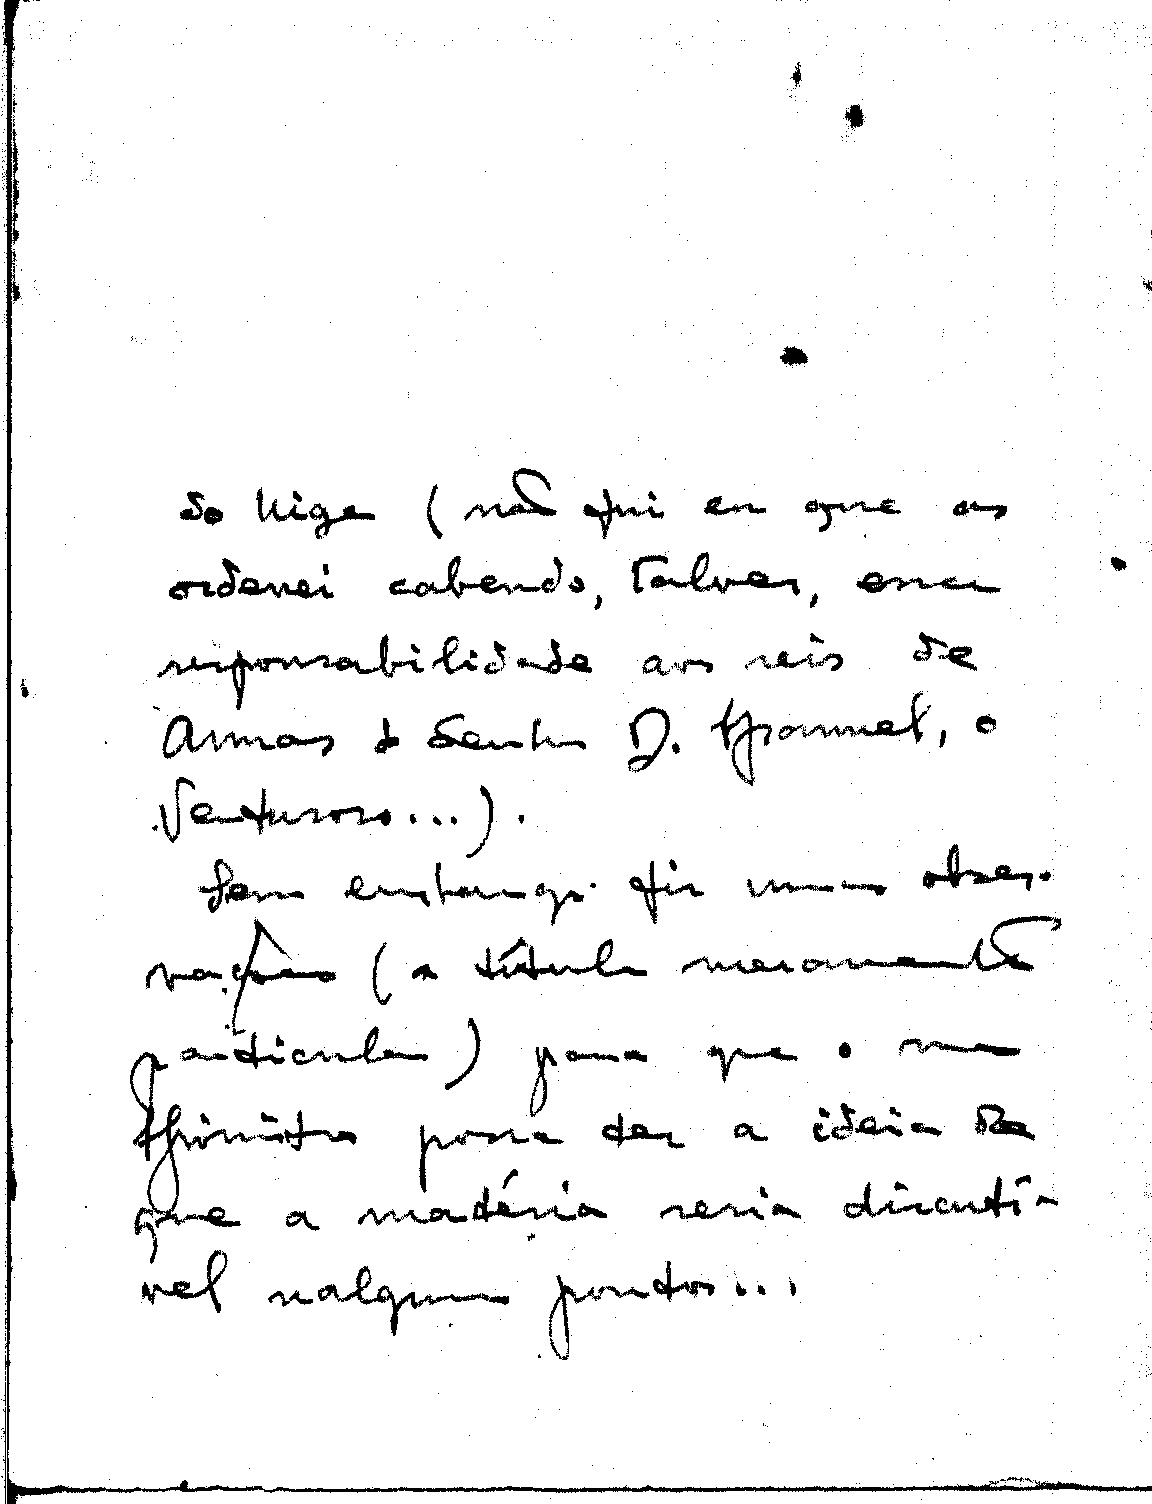 do Uige (não fui eu que as
ordenei cabendo, talvez, essa
responsabilidade aos reis de
Armas do Senhor D. Manuel, o
Venturoso...).
Sem embargo fiz umas obser-
vações (a título meramente
particular) para que o meu
Ministro possa ter a ideia de
que a matéria seria discutí-
vel nalguns pontos...